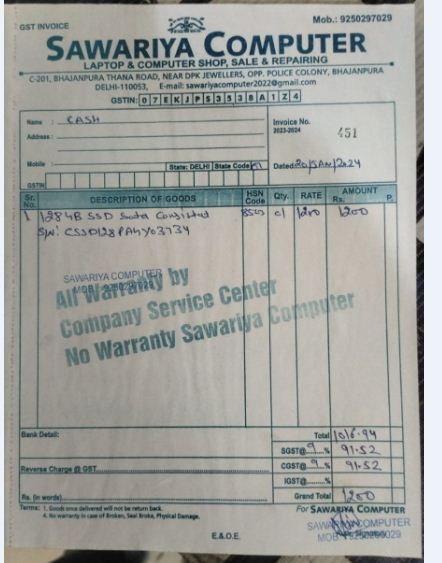 GST INVOICE
Mob.: 9250297029
SAWARIYA COMPUTER
LAPTOP & COMPUTER SHOP, SALE & REPAIRING
C-201, BHAJANPURA THANA ROAD, NEAR DPK JEWELLERS, OPP. POLICE COLONY, BHAJANPURA
DELHI-110053, E-mail: sawariyacomputer2022@gmail.com
GSTIN: 07EKJPS3538A1Z4
Name : CASH
Address :
Mobile :
State: DELHI State Code
GSTIN
Invoice No.
2023-2024
451
Dated 20/JAN/2024
Sr. No. DESCRIPTION OF GOODS HSN Code Qty. RATE AMOUNT Rs. P.
1 128 GB SSD 1200 1200
S/N: CSSD128PA4Y03734
SAWARIYA COMPUTER
MOB.: 9250297029
All Warranty by
Company Service Center
No Warranty Sawariya Computer
Bank Detail:
Total 1016.94
SGST@ 9 % 91.52
Reverse Charge @ GST
CGST@ 9 % 91.52
IGST@ %
Rs. (in words)
Grand Total 1200
Terms: 1. Goods once delivered will not be return back.
4. No warranty in case of Broken, Seal Broke, Physical Damage.
For SAWARIYA COMPUTER
SAWARIYA COMPUTER
MOB.: 9250297029
E.&O.E.